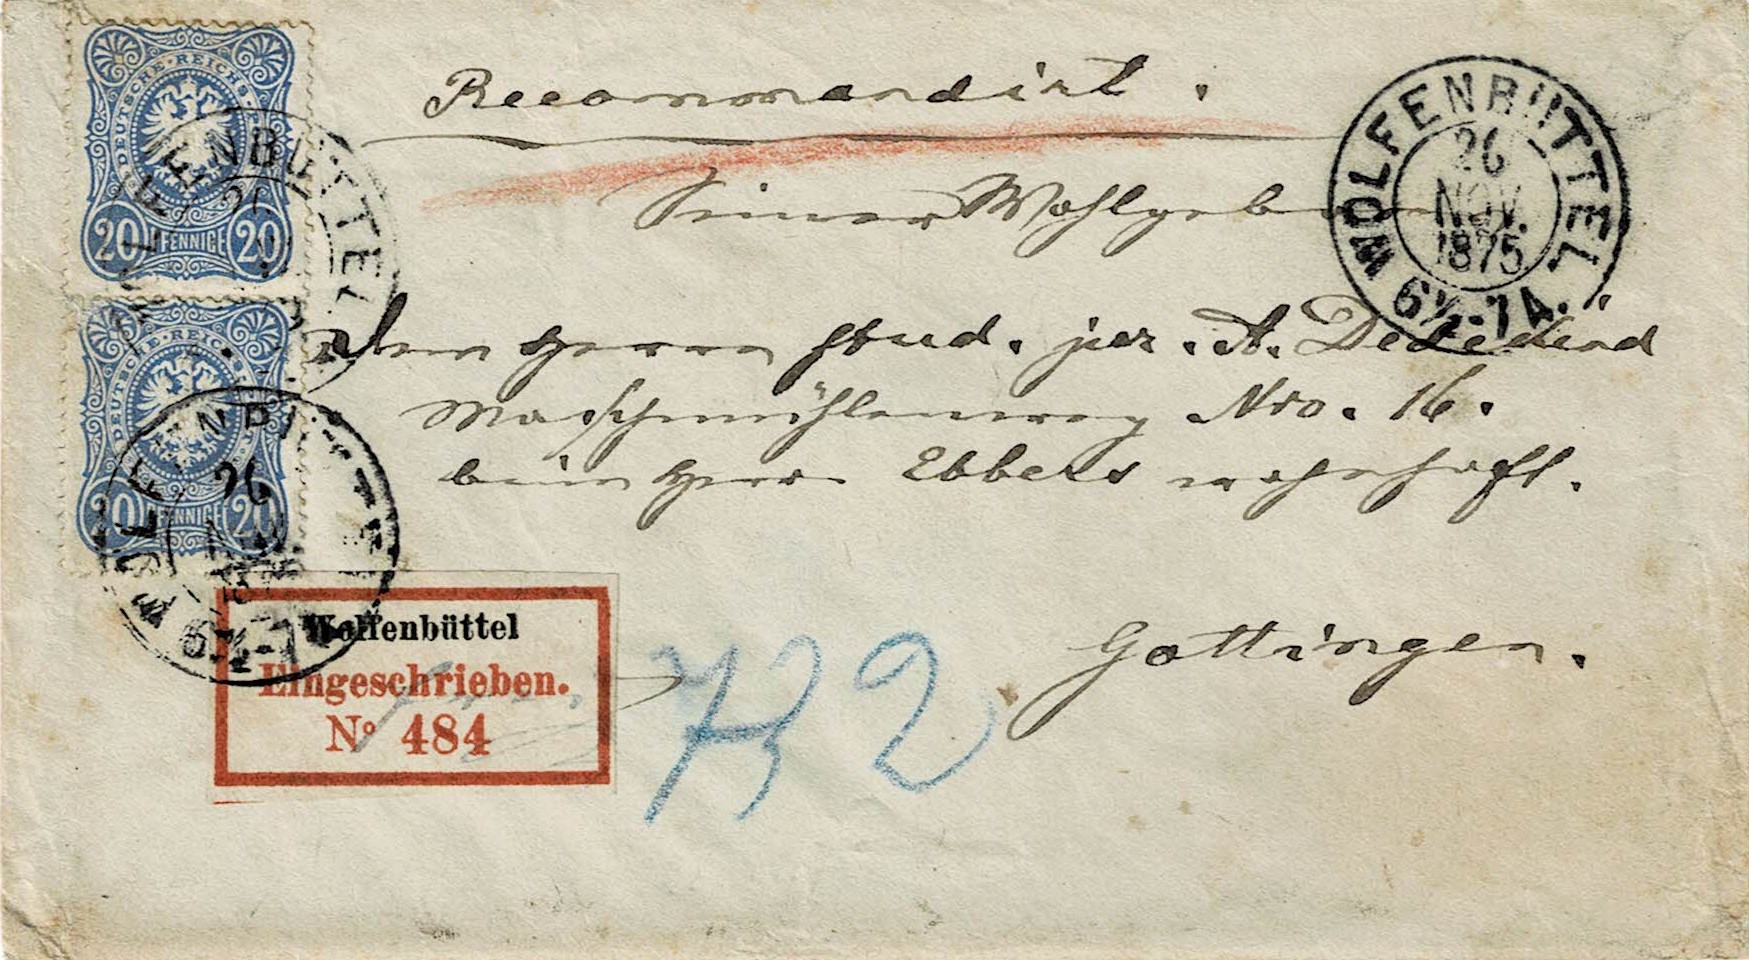 DEUTSCHE · REICHS-
20 PFENNIGE 20
WOLFENBÜTTEL
26
DEUTSCHE · REICHS-
20 PFENNIGE 20
WOLFENBÜTTEL
26
NOV.
6½-7A.
Recommandirt.
WOLFENBÜTTEL
26
NOV.
1875
6½-7A.
Seiner Wohlgeboren
dem Herrn stud. jur. A. Dedekind
Maschmühlenweg Nro. 16.
beim Herrn Ebbers wohnhaft.
Göttingen.
Wolfenbüttel
Eingeschrieben.
No 484